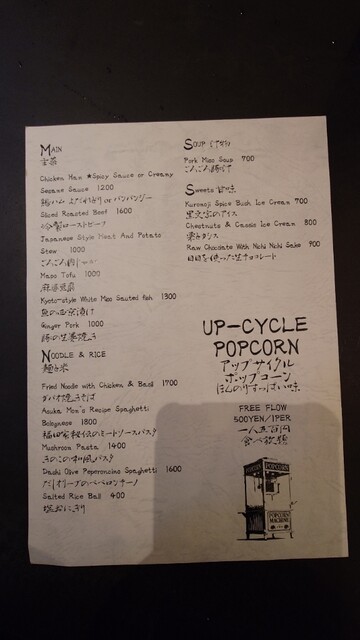 MAIN
主菜
Chicken Ham ★Spicy Sauce or Creamy
Sesame Sauce 1200
鶏ハム よだれどり or バンバンジー
Sliced Roasted Beef 1600
冷製ローストビーフ
Japanese Style Meat And Potato
Stew 1000
ごろごろ肉じゃが
Mapo Tofu 1000
麻婆豆腐
Kyoto-style White Miso Sauted fish 1300
魚の西京漬け
Ginger Pork 1000
豚の生姜焼き
NOODLE & RICE
麺と米
Fried Noodle with Chicken & Basil 1700
ガパオ焼きそば
Asuka Mom's Recipe Spaghetti
Bolognese 1800
福田家秘伝のミートソースパスタ
Mushroom Pasta 1400
きのこの和風パスタ
Dashi Olive Peperoncino Spaghetti 1600
だしオリーブのペペロンチーノ
Salted Rice Ball 400
塩おにぎり
SOUP 汁物
Pork Miso Soup 700
ごろごろ豚汁
Sweets 甘味
Kuromoji Spice Bush Ice Cream 700
黒文字のアイス
Chestnuts & Cassis Ice Cream 800
栗とカシス
Raw Chocolate With Nichi Nichi Sake 900
日日を使った生チョコレート
UP-CYCLE
POPCORN
アップサイクル
ポップコーン
ほんのりすっぱい味
FREE FLOW
500YEN/1PER
一人五百円
食べ放題
POPCORN POPCORN
POPCORN
MACHINE